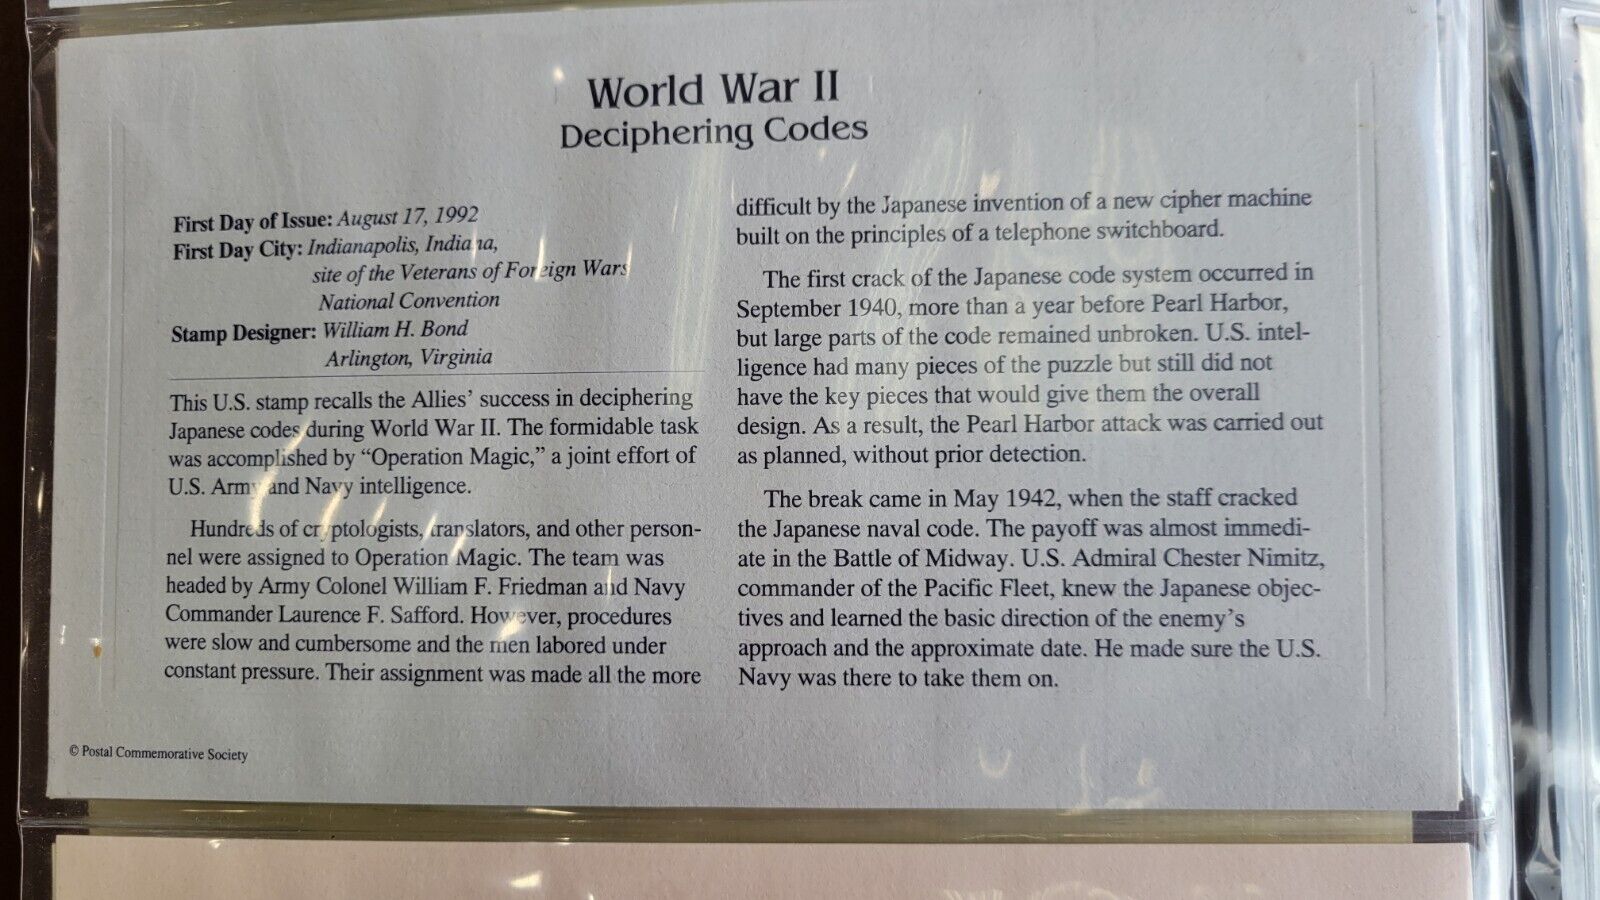 World War II
Deciphering Codes
First Day of Issue: August 17, 1992
First Day City: Indianapolis, Indiana,
site of the Veterans of Foreign Wars
National Convention
Stamp Designer: William H. Bond
Arlington, Virginia
This U.S. stamp recalls the Allies' success in deciphering
Japanese codes during World War II. The formidable task
was accomplished by “Operation Magic,” a joint effort of
U.S. Army and Navy intelligence.
Hundreds of cryptologists, translators, and other person-
nel were assigned to Operation Magic. The team was
headed by Army Colonel William F. Friedman and Navy
Commander Laurence F. Safford. However, procedures
were slow and cumbersome and the men labored under
constant pressure. Their assignment was made all the more
difficult by the Japanese invention of a new cipher machine
built on the principles of a telephone switchboard.
The first crack of the Japanese code system occurred in
September 1940, more than a year before Pearl Harbor,
but large parts of the code remained unbroken. U.S. intel-
ligence had many pieces of the puzzle but still did not
have the key pieces that would give them the overall
design. As a result, the Pearl Harbor attack was carried out
as planned, without prior detection.
The break came in May 1942, when the staff cracked
the Japanese naval code. The payoff was almost immedi-
ate in the Battle of Midway. U.S. Admiral Chester Nimitz,
commander of the Pacific Fleet, knew the Japanese objec-
tives and learned the basic direction of the enemy's
approach and the approximate date. He made sure the U.S.
Navy was there to take them on.
© Postal Commemorative Society